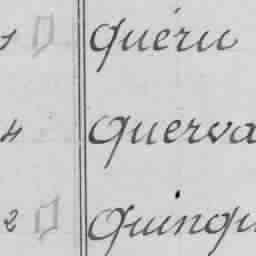 1 Quéru
4 Querva
2 Quinqu